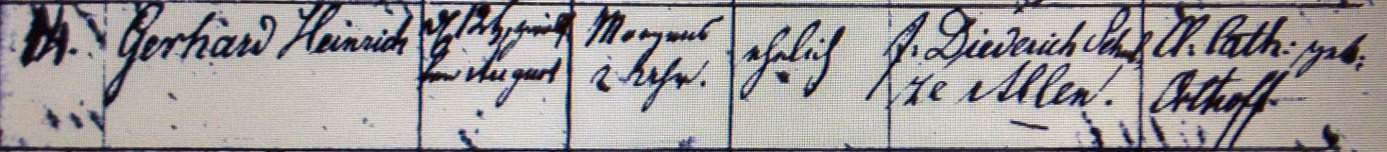 Gerhard Heinrich
August
Morgens
2 Uhr.
ehelich
J. Diederich Schul
ze Allen.
Cath: geb:
Olthoff